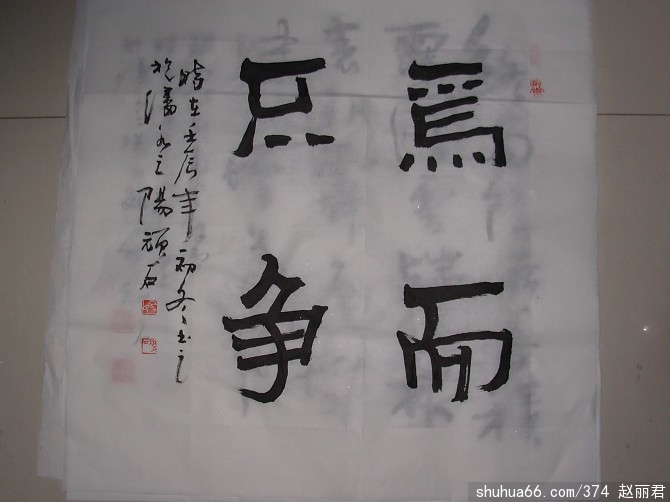 為而
不争
時在壬辰年初冬书之
於瀋水之陽頑石
shuhua66.com/374 赵丽君